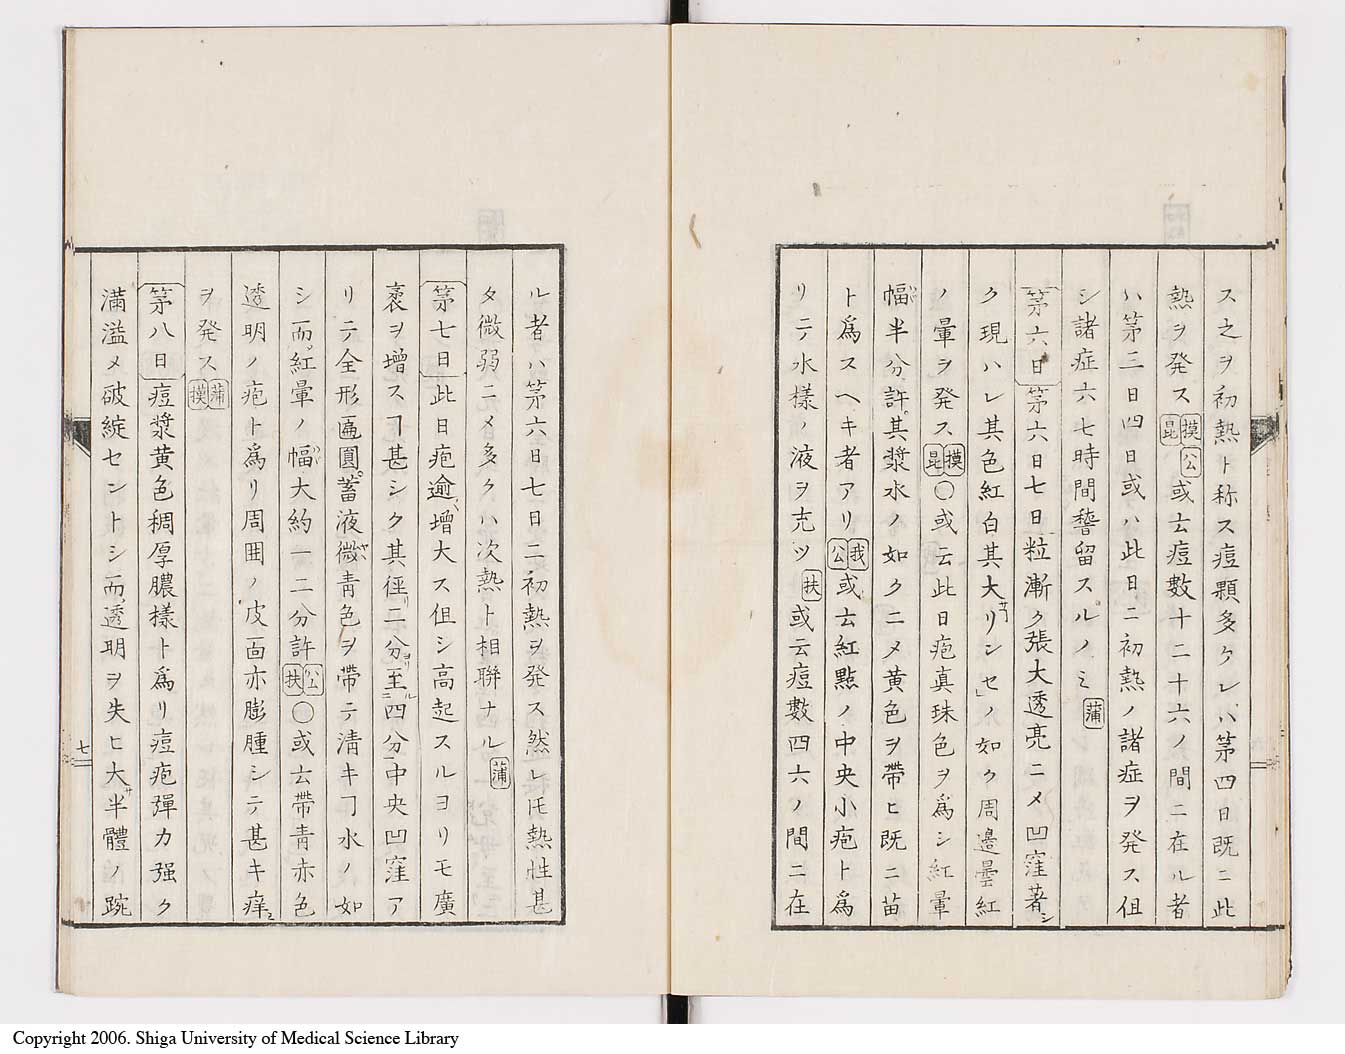 ス之ヲ初熱ト称ス痘顆多ケレハ第四日既ニ此
熱ヲ発ス摸昆公或云痘數十二十六ノ間ニ在ル者
ハ第二日四日或ハ此日ニ初熱ノ諸症ヲ発ス伹
シ諸症六七時間 留スルノミ蒲
第六日第六日七日粒漸ク張大透亮ニメ凹窪著シ
ク現ハレ其色紅白其大サリンセ」ノ如ク周邊曇紅
ノ暈ヲ発ス摸昆〇或云此日疱真珠色ヲ為シ紅暈
幅半分許其漿水ノ如クニメ黄色ヲ帶ヒ既ニ苗
ト為スヘキ者アリ我公或云紅點ノ中央小疱ト為
リテ水樣ノ液ヲ充ツ扶或云痘數四六ノ間ニ在
ル者ハ第六日七日ニ初熱ヲ発ス然レ𪜈熱性甚
タ微弱ニメ多クハ次熱ト相聯ナル蒲
第七日此日疱逾増大ス伹シ高起スルヨリモ廣
袤ヲ增スヿ甚シク其徑リ二分ヨリ四分ニ至ル中央凹窪ア
リテ全形匾圓蓄液微ヤ青色ヲ帶テ清キヿ水ノ如
シ而紅暈ノ幅大約一二分許公扶〇或云帶青赤色
透明ノ疱ト為リ周囲ノ皮面亦膨腫シテ甚キ痒
ヲ発ス蒲摸
第八日痘漿黄色稠厚膿樣ト為リ痘疱彈力强ク
満溢メ破綻セントシ而透明ヲ失ヒ大サ半體ノ豌
七
Copyright 2006. Shiga University of Medical Science Library